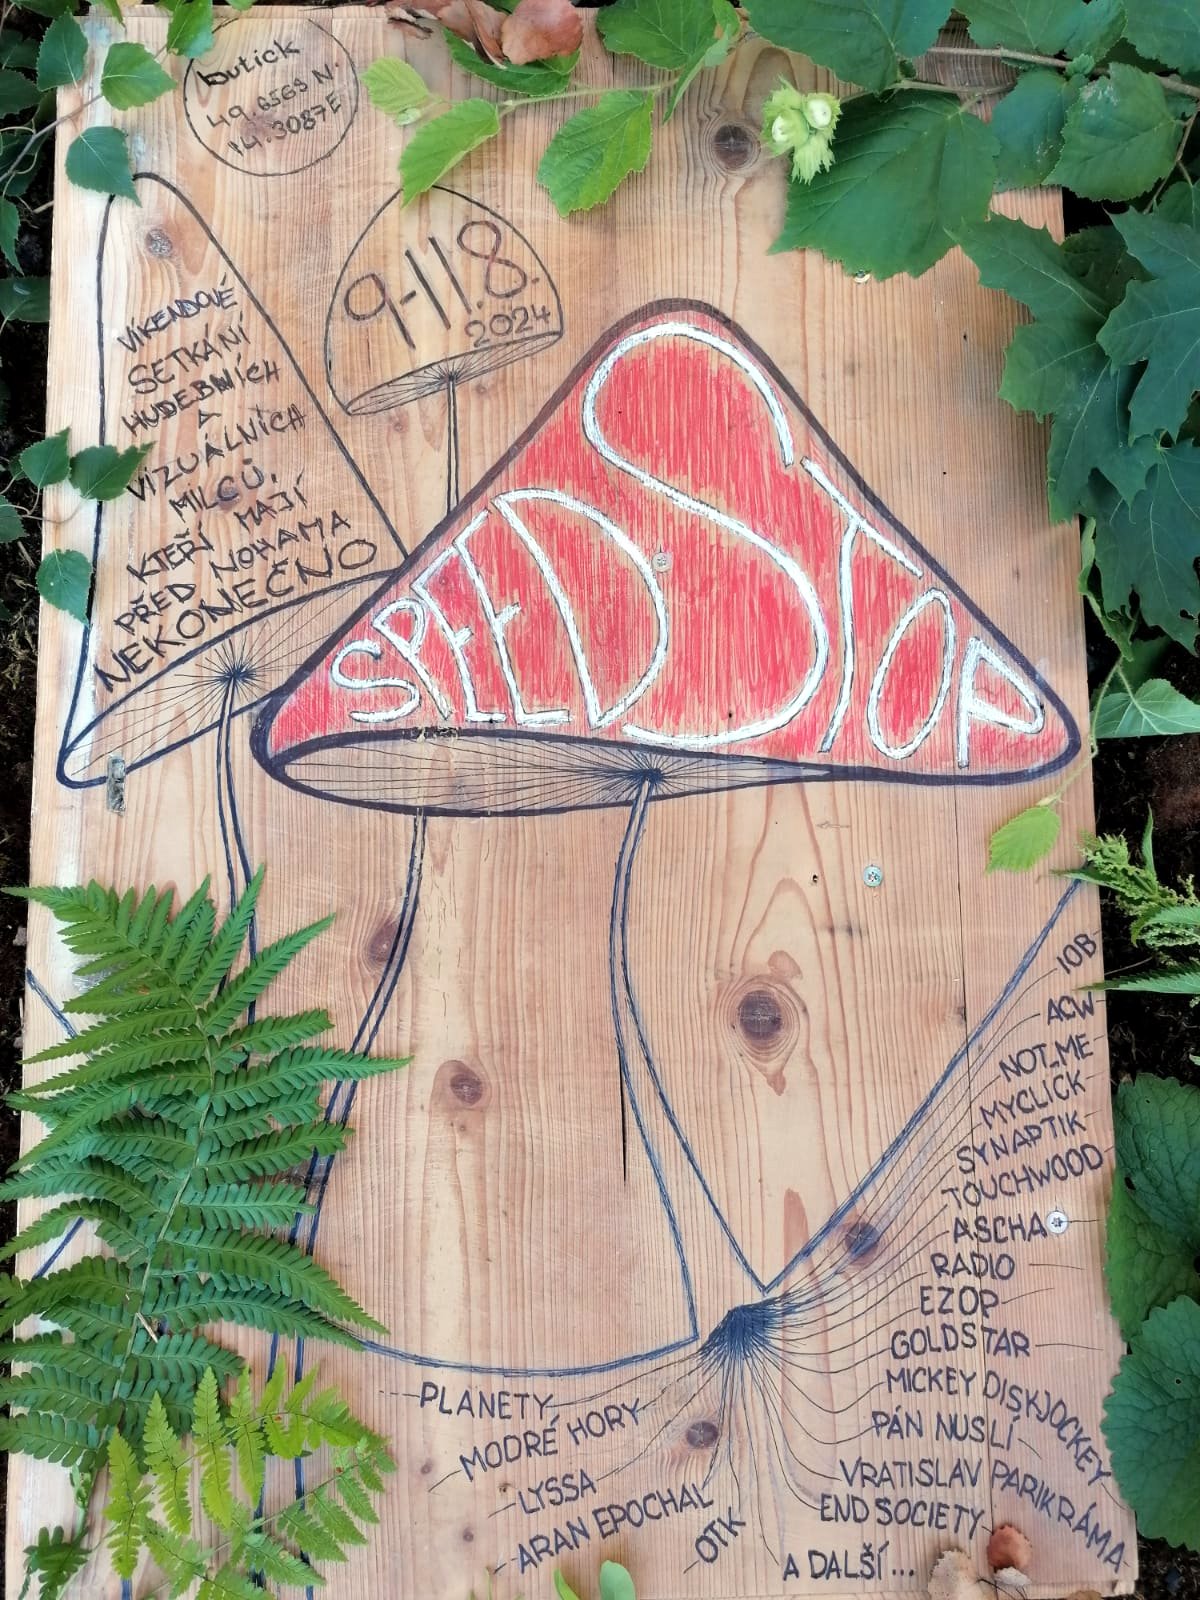 butick
49.6569 N.
14.3087E
9-11.8.
2024
VÍKENDOVÉ
SETKÁNÍ
HUDEBNÍCH
A
VIZUÁLNÍCH
MILCŮ,
KTEŘÍ MAJÍ
PŘED NOHAMA
NEKONEČNO
SPEED STOP
IOB
ACW
NOT_ME
MYCLICK
SYNAPTIK
TOUCHWOOD
ASCHA
RADIO
EZOP
GOLDSTAR
MICKEY DISKJOCKEY
PÁN NUSLÍ
VRATISLAV PARIKRÁMA
END SOCIETY
PLANETY
MODRÉ HORY
LYSSA
ARAN EPOCHAL
OTK
A DALŠÍ...